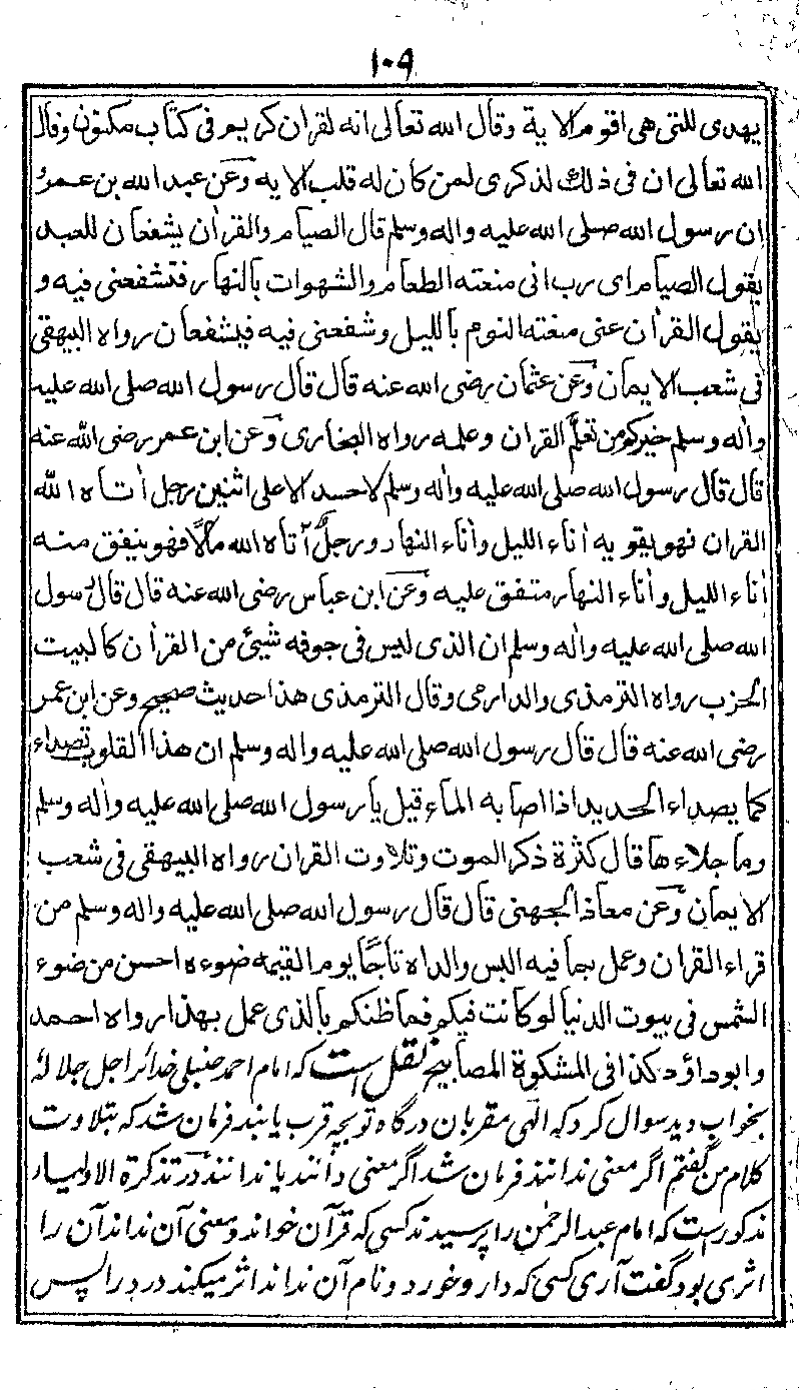 ١٠٩
يهدى للتى هى اقوم الاية وقال الله تعالى انه لقران كريم فى كتاب مكنون وقال
الله تعالى ان فى ذلك لذكرى لمن كان له قلب الايه وعن عبد الله بن عمرو
ان رسول الله صلى الله عليه واله وسلم قال الصيام والقران يشفعان للعبد
يقول الصيام اى رب انى منعته الطعام والشهوات بالنهار فتشفعنى فيه و
يقول القران عنى منعته النوم بالليل وشفعنى فيه فيشفعان رواه البيهقى
فى شعب الايمان وعن عثمان رضى الله عنه قال قال رسول الله صلى الله عليه
واله وسلم خيركم من تعلم القران وعلمه رواه البخارى وعن ابن عمر رضى الله عنه
قال قال رسول الله صلى الله عليه واله وسلم لا حسد الا على اثنين رجل اتاه الله
القران فهو يقو به أناء الليل وأناء النهار ورجلٌ آتاه الله مالًا فهو ينفق منه
أناء الليل وأناء النهار متفق عليه وعن ابن عباس رضى الله عنه قال قال رسول
الله صلى الله عليه واله وسلم ان الذى ليس فى جوفه شيئ من القران كالبيت
الخرب رواه الترمذى والدارمى وقال الترمذى هذا حديث صحيح وعن ابن عمر
رضى الله عنه قال قال رسول الله صلى الله عليه واله وسلم ان هذا القلوب تصداء
كما يصداء الحديد اذا اصابه الماء قيل يا رسول الله صلى الله عليه واله وسلم
وما جلاءها قال كثرة ذكر الموت وتلاوت القران رواه البيهقى فى شعب
الايمان وعن معاذ الجهنى قال قال رسول الله صلى الله عليه واله وسلم من
قراء القران وعمل بما فيه البس والداه تاجًا يوم القيمه ضوءه احسن من ضوء
الشمس فى بيوت الدنيا لو كانت فيكم فما ظنكم بالذى عمل بهذا رواه احمد
وابوداؤد كذا فى المشكوة المصابيح نقل است كه امام احمد حنبلى خدائرا جل جلاله
بخواب ديد سوال كرد كه الٓهى مقربان درگاه تو بچه قرب يابند فرمان شد كه بتلاوت
كلام من گفتم اگر معنى ندانند فرمان شد اگر معنى دانند يا ندانند در تذكرة الاوليار
مذكور است كه امام عبدالرحمٰن را پرسيدند كسى كه قرآن خواند و معنى آن نداند آن را
اثرى بود گفت آرى كسى كه دارو خورد و نام آن نداند اثر ميكند در درا پس